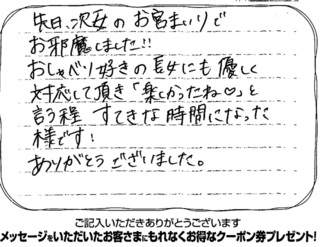 先日、次女のお宮まいりで
お邪魔しました!!
おしゃべり好きの長女にも優しく
対応して頂き「楽しかったね♡」と
言う程 すてきな時間になった
様です!
ありがとうございました。
ご記入いただきありがとうございます
メッセージをいただいたお客さまにもれなくお得なクーポン券プレゼント!